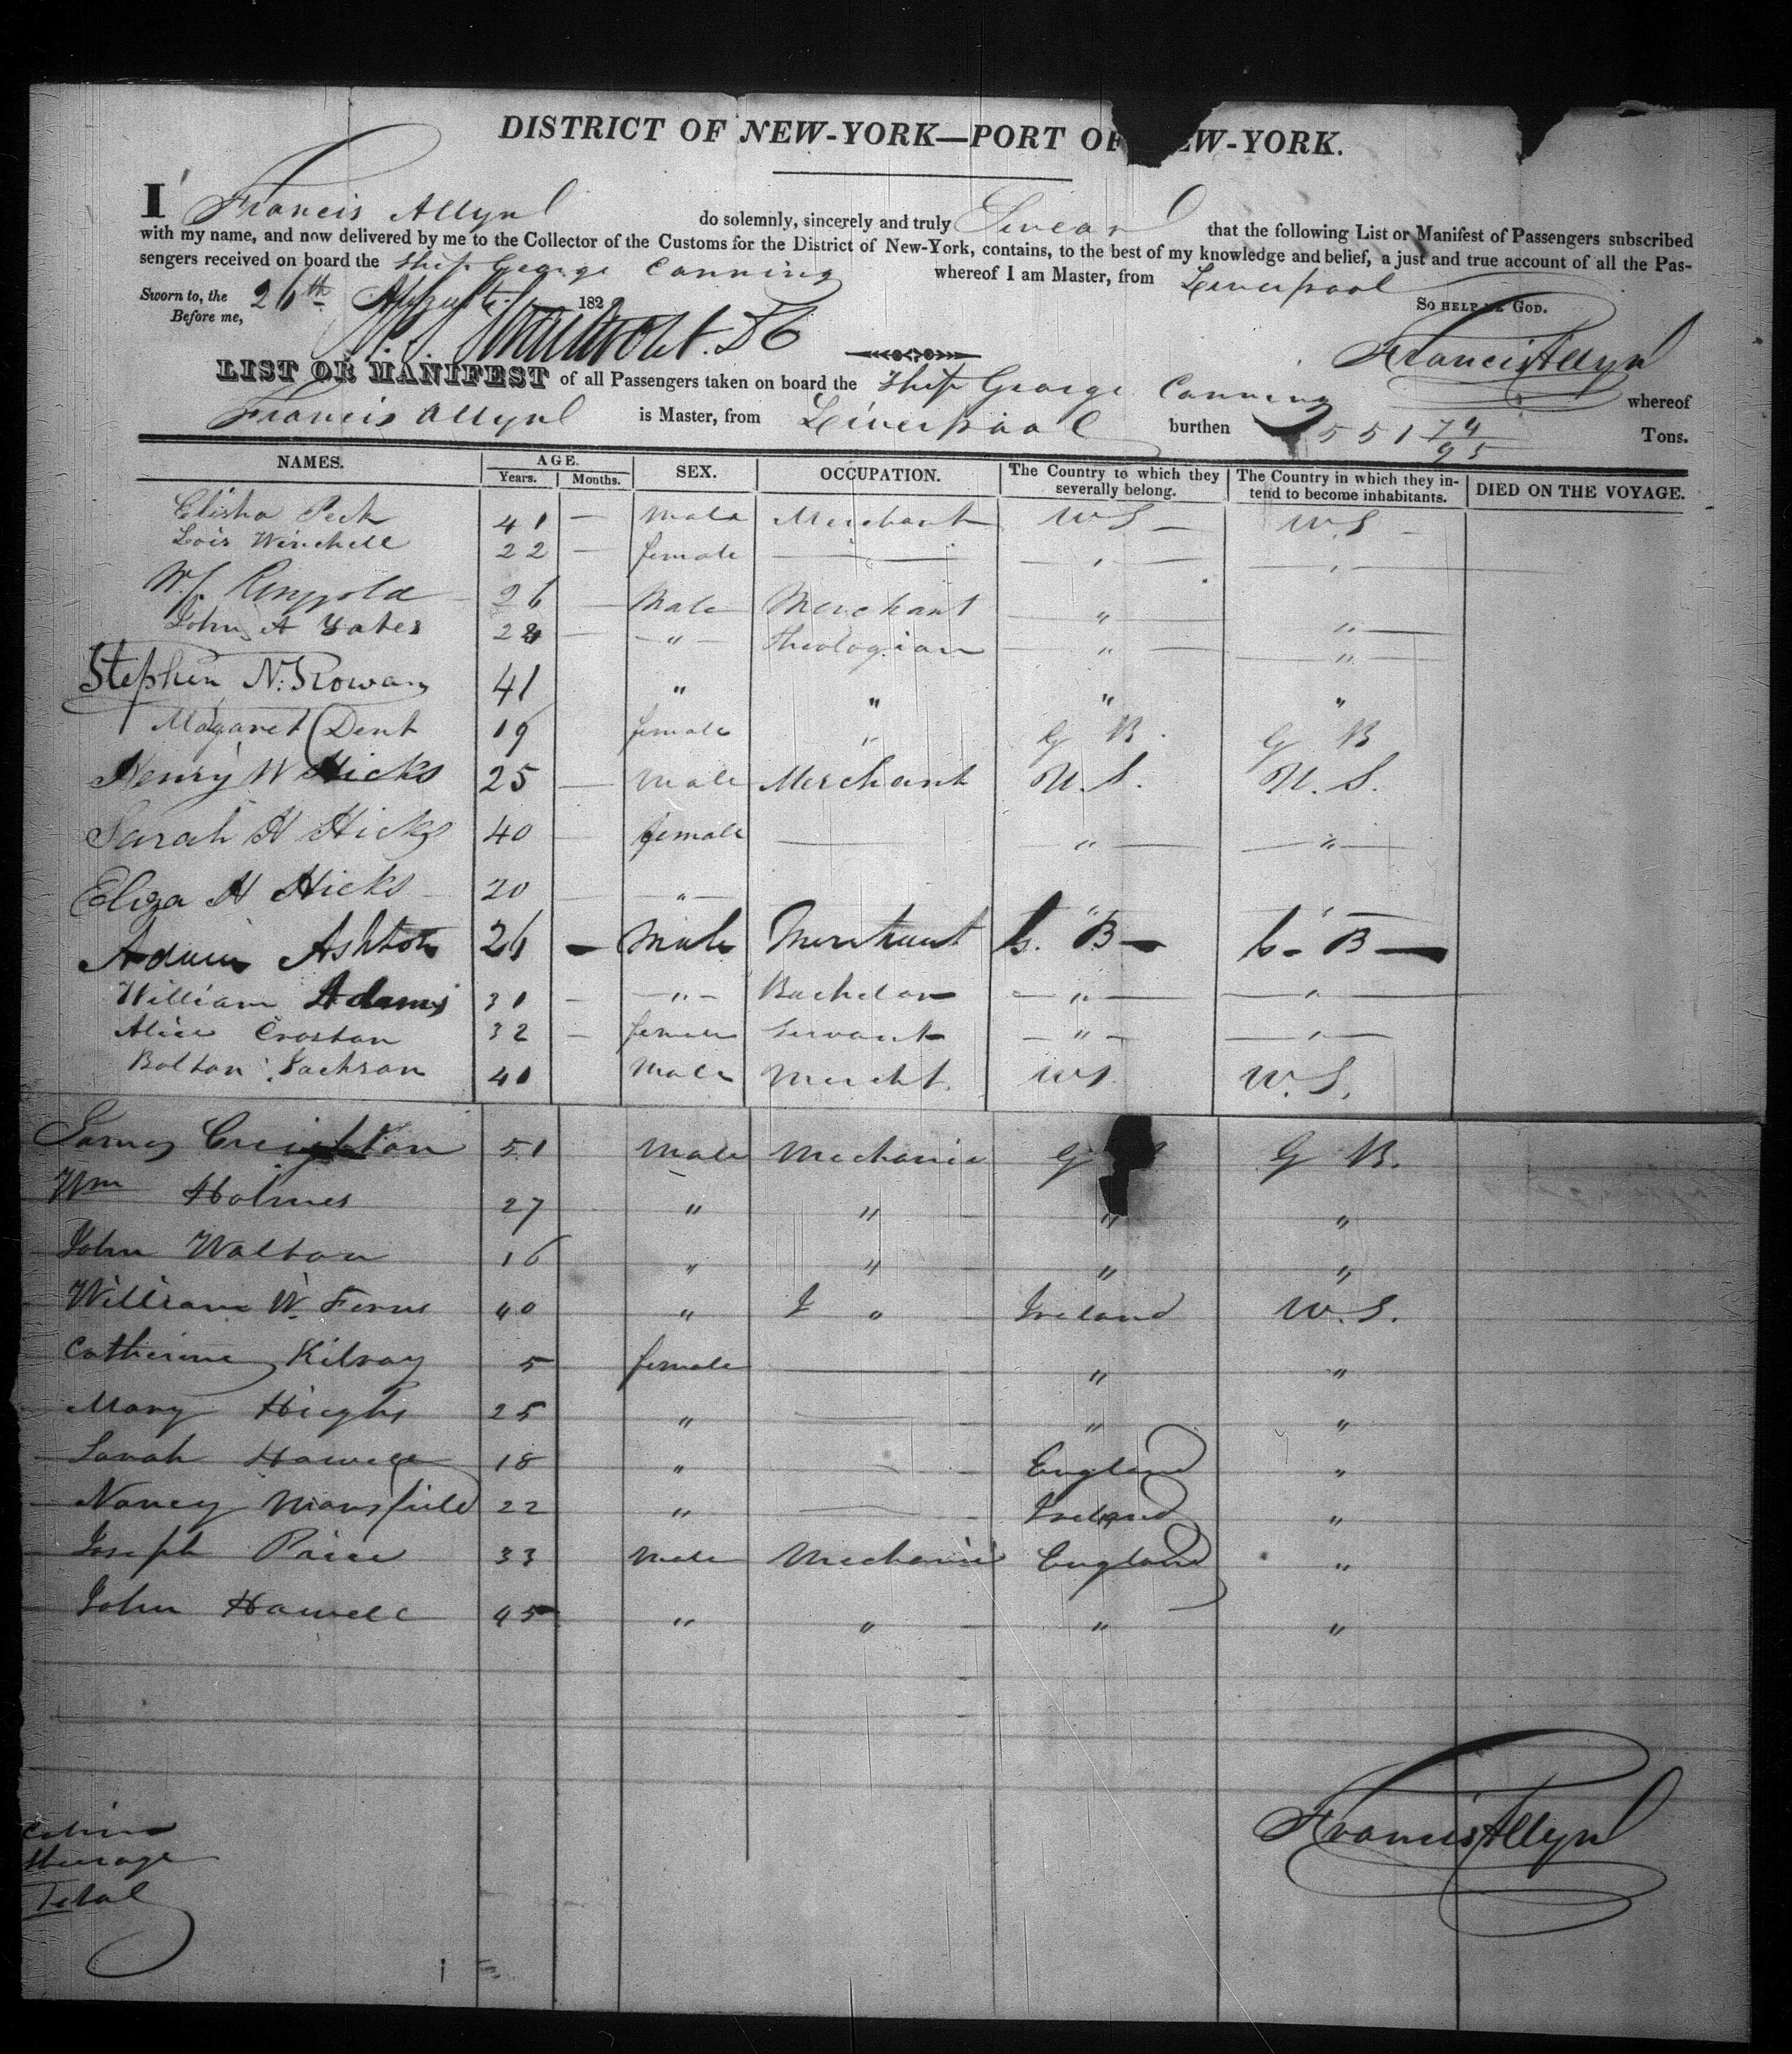 DISTRICT OF NEW-YORK—PORT OF EW-YORK.
I Francis Allyn do solemnly, sincerely and truly Swear that the following List or Manifest of Passengers subscribed
with my name, and now delivered by me to the Collector of the Customs for the District of New-York, contains, to the best of my knowledge and belief, a just and true account of all the Pas-
sengers received on board the Ship George Canning whereof I am Master, from Liverpool
Sworn to, the 26th August 182 SO HELP ME GOD.
Before me,
Francis Allyn
LIST OR MANIFEST of all Passengers taken on board the Ship George Canning whereof
Francis Allyn is Master, from Liverpool burthen 551 74/95 Tons.
NAMES. AGE. Years. Months. SEX. OCCUPATION. The Country to which they severally belong. The Country in which they in-tend to become inhabitants. DIED ON THE VOYAGE.
Elisha Peck 41 — Male Merchant US — US —
Lois Winchell 22 — female — " — — " —
Wm Ringgold 26 — Male Merchant — " — "
John A Yates 28 — " — theologian — " — — " —
Stephen N. Rowan 41 " " " "
Margaret Dent 19 female " G B. G B
Henry W Hicks 25 — Male Merchant U.S. U.S.
Sarah H Hicks 40 — female — — " — — " —
Eliza H Hicks 20 — — " — " "
Ashton 26 — Male Merchant G. B — G. B —
William Adams 31 — — " — Bachelor — " — — " —
Alice Croston 32 — female Servant — " — — " —
Bolton Jackson 41 Male Mercht. US. U.S.
James Creighton 51 Male Mechanic G G B.
Wm Holmes 27 " " " "
John Walton 16 " " " "
William W. Ferns 40 " " Ireland U.S.
Catherine Kilroy 5 female — " "
Mary Hughs 25 " — " "
Sarah Howell 18 " — England "
Nancy Mansfield 22 " — Ireland "
Joseph Price 33 Male Mechanic England "
John Howell 45 " " " "
Francis Allyn
Cabin
Steerage
Total